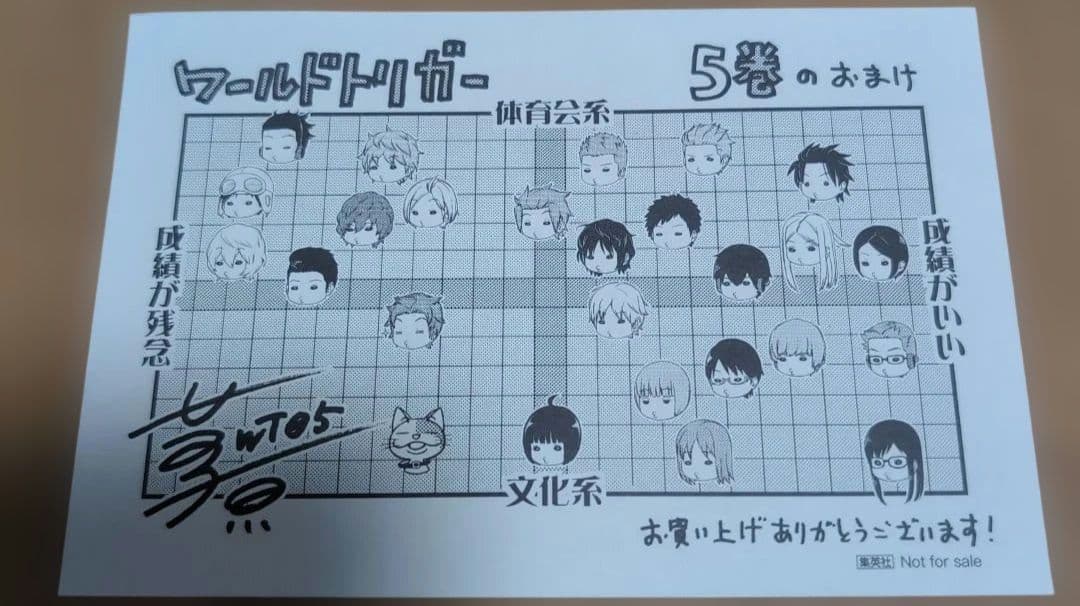 ワールドトリガー
5巻のおまけ
体育会系
成績が残念
成績がいい
WT05
文化系
お買い上げありがとうございます!
集英社 Not for sale